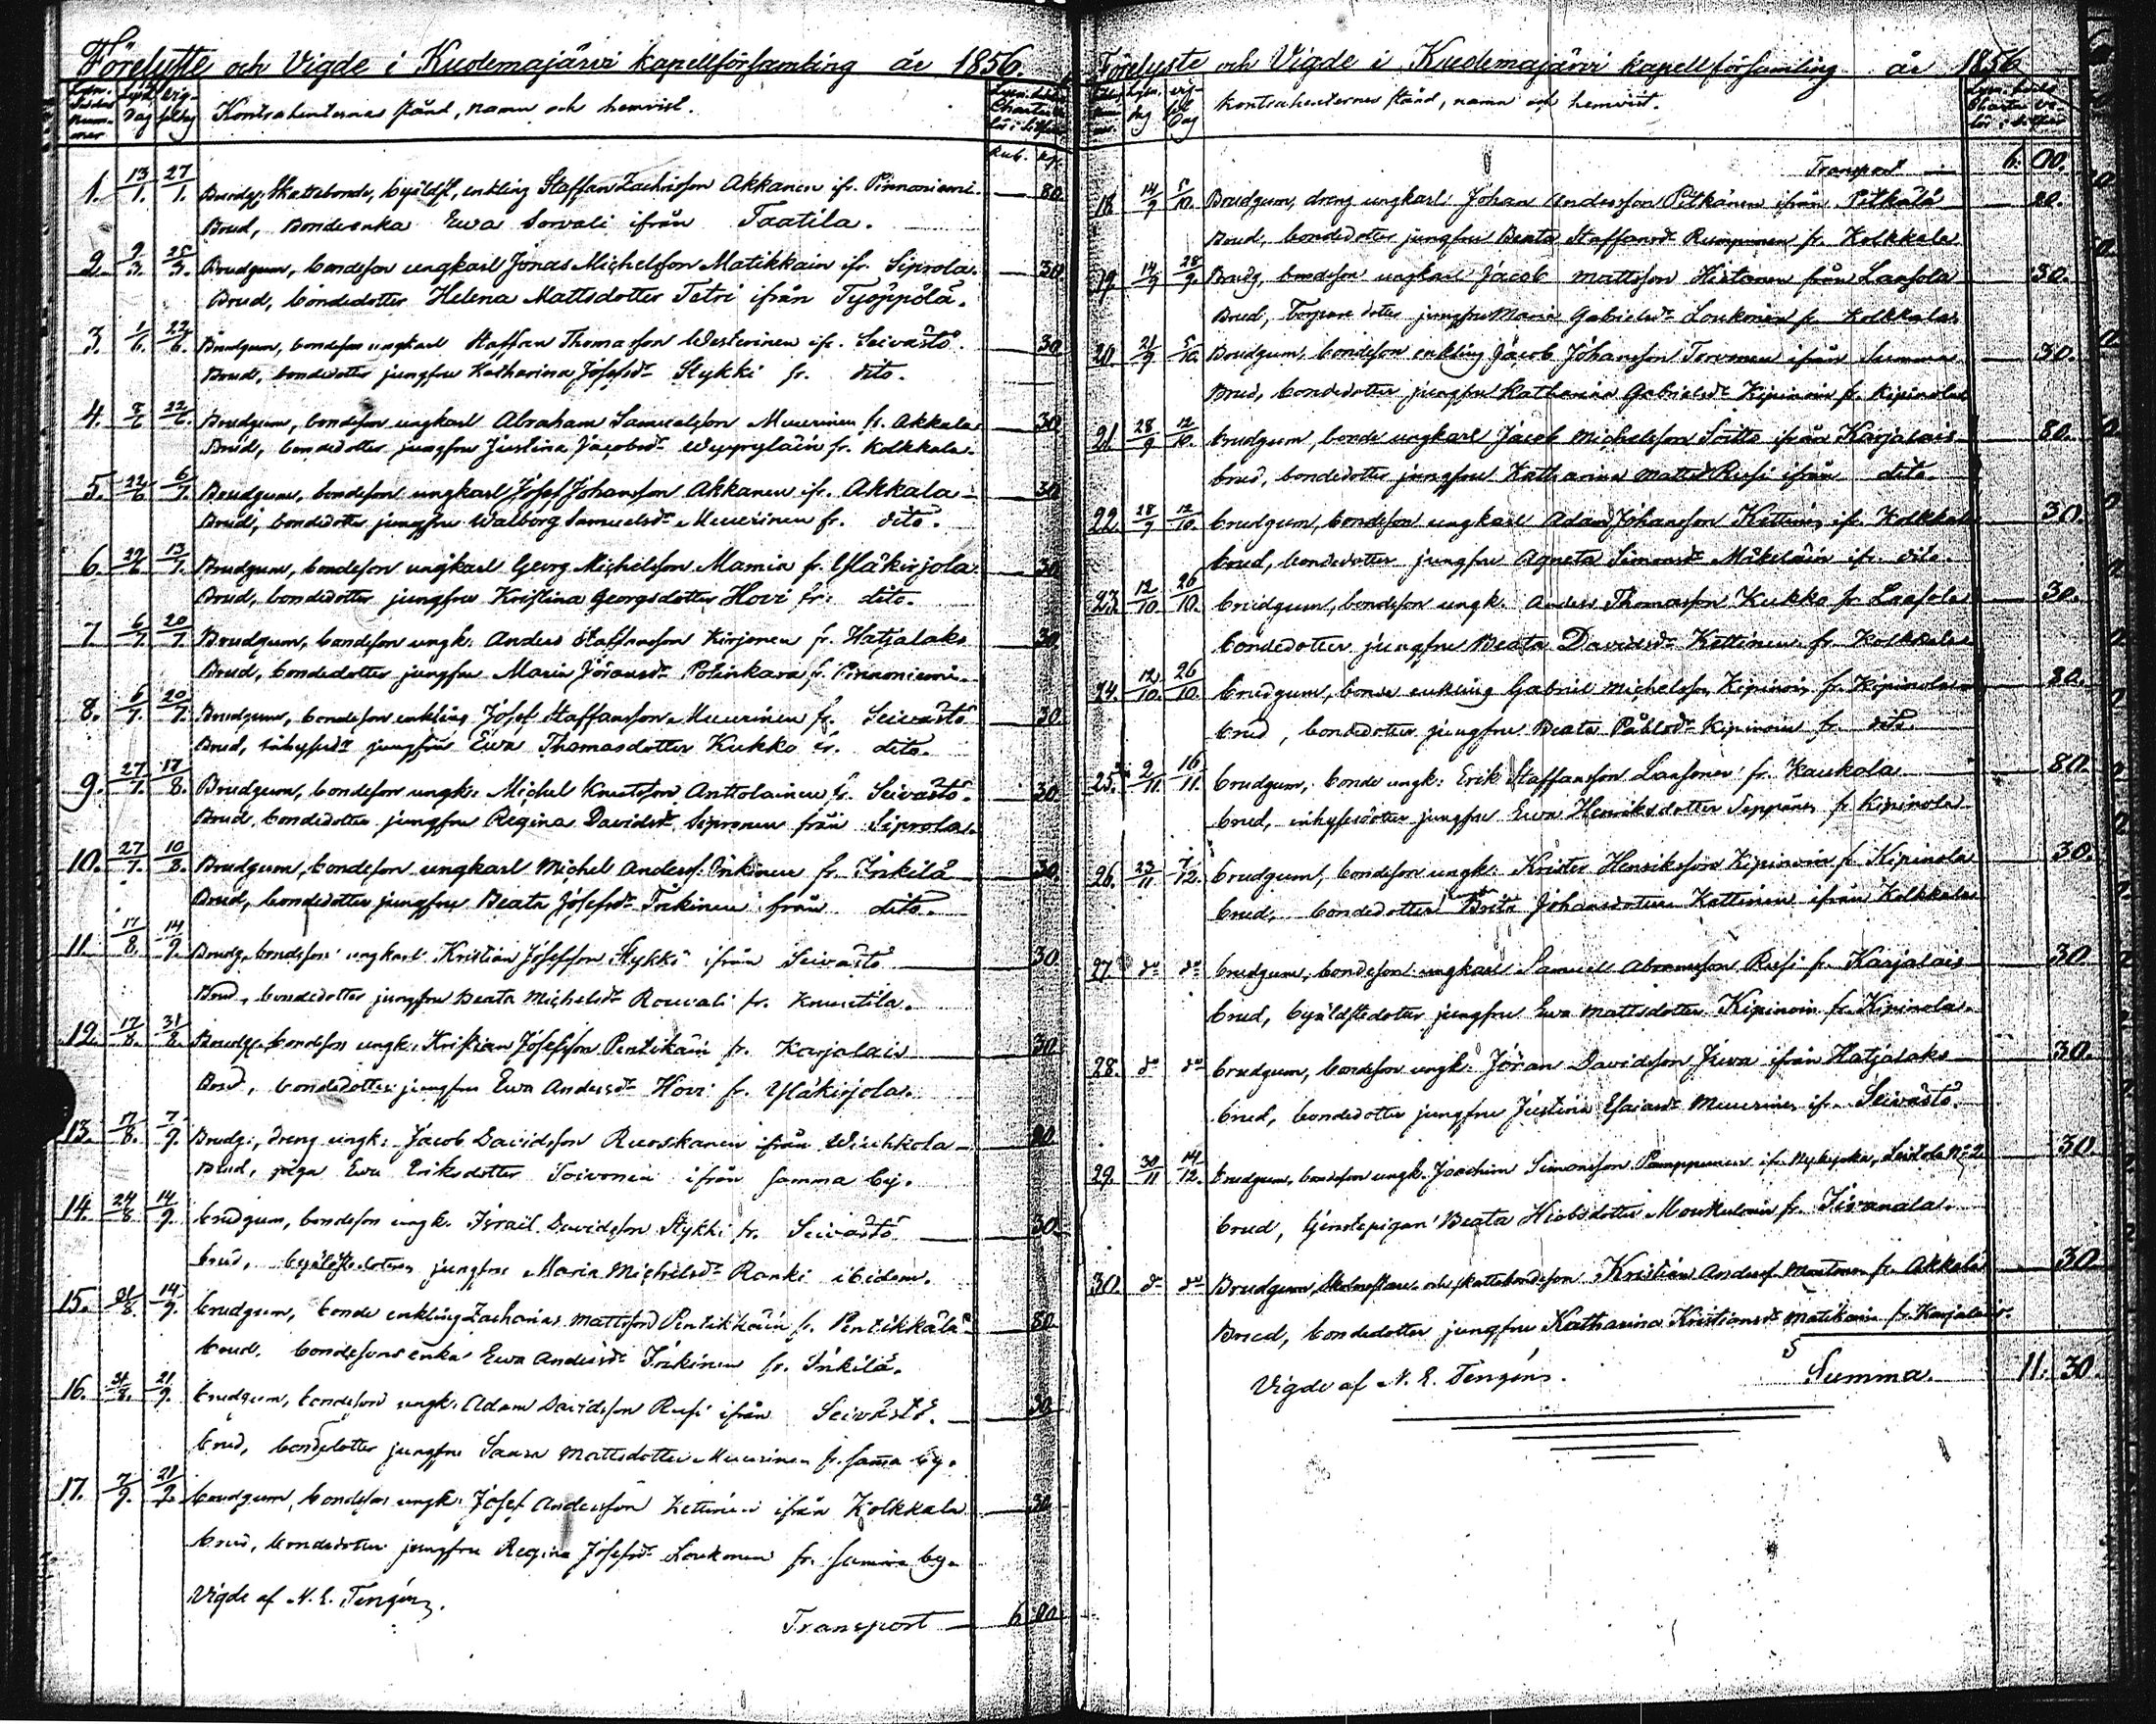 Förelyste och Vigde i Kuolemajärvi kapellförsamling år 1856.
Kontrahenternas stånd, namn och hemvist.
Rub. kop.
1. 13/1. 27/1. Brudg: Skattebonde, byäldst, enkling Staffan Zachrisson Akkanen ifr. Pinnoniemi. 80
Brud, Bondeenka Ewa Sorvali ifrån Taatila.
2. 9/3. 25/3. Brudgum, bondeson ungkarl Jonas Michelsson Matikkain ifr. Siprola. 30
Brud, bondedotter Helena Mattsdotter Tetri ifrån Tyøppölä.
3. 1/6. 22/6. Brudgum, bondeson ungkarl Staffan Thomasson Westerinen ifr. Seivästö. 30
Brud, bondedotter jungfru Katharina Josefsdr Stykki fr. dito.
4. 8/6 22/6. Brudgum, bondeson ungkarl Abraham Samuelsson Muurinen fr. Akkala 30
Brud, bondedotter jungfru Justina Jacobsdr Wepsyläin fr. Kolkkala.
5. 22/6 6/7. Brudgum, bondeson ungkarl Josef Johansson Akkanen ifr. Akkala 30
Brud, bondedotter jungfru Walborg Samuelsdr Muurinen fr. dito.
6. 29/6 13/7. Brudgum, bondeson ungkarl Georg Michelsson Mamia fr. Yläkirjola 30
Brud, bondedotter jungfru Kristina Georgsdotter Hovi fr. dito.
7. 6/7. 20/7. Brudgum, bondeson ungk. Anders Staffansson Kirjonen fr. Hatjalaks 30
Brud, bondedotter jungfru Maria Jöransdr Potinkara fr. Pinnoniemi.
8. 6/7. 20/7. Brudgum, bondeson enkling Josef Staffansson Muurinen fr. Seivästö 30
Brud, inhysesdr jungfru Ewa Thomasdotter Kukko fr. dito.
9. 27/7. 17/8. Brudgum, bondeson ungk. Michel Knutsson Anttolainen fr. Seivästö. 30.
Brud, bondedotter jungfru Regina Davidsdr Sipronen från Siprola.
10. 27/7. 10/8. Brudgum, bondeson ungkarl Michel Anderss. Inkinen fr. Inkilä 30.
Brud, bondedotter jungfru Beata Josefsdr Inkinen från dito.
11. 17/8. 14/9. Brudg. bondeson ungkarl Kristian Josefsson Stykki ifrån Seivästö 30
Brud, bondedotter jungfru Beata Michelsdr Rouvali fr. Knuutila.
12. 17/8. 31/8. Brudg. bondeson ungk. Kristian Josefsson Pentikäin fr. Karjalais 30
Brud, bondedotter jungfru Ewa Andersdr Hovi fr. Yläkirjola.
13. 17/8. 7/9. Brudg:, dreng ungk: Jacob Davidsson Ruoskanen ifrån Wiuhkola 20
Brud, piga Ewa Eriksdotter Toivonen ifrån samma by.
14. 24/8. 14/9. brudgum, bondeson ungk. Israel Davidsson Stykki fr. Seivästö 30
brud, byäldstedotter jungfru Maria Michelsdr Ranki ibidem.
15. 31/8. 14/9. brudgum, bonde enkling Zacharias Mattsson Pentikkäin fr. Pentikkälä 80
brud, bondesons enka Ewa Andersdr Inkinen fr. Inkilä.
16. 31/8. 21/9. brudgum, bondeson ungk. Adam Davidsson Rusi ifrån Seivästö. 30
brud, bondedotter jungfru Sanna Mattsdotter Muurinen fr. samma by.
17. 7/9. 21/9. brudgum, bondeson ungk: Josef Andersson Kettunen ifrån Kolkkala 30
brud, bondedotter jungfru Regina Josefsdr Loukonen fr. samma by.
Vigde af N. E. Tengén.
Transport 6 00.
Förelyste och Vigde i Kuolemajärvi kapellförsamling år 1856
Kontrahenternes stånd, namn och hemvist.
Transport 6: 00.
18. 14/9 5/10. Brudgum, dreng ungkarl Johan Andersson Pitkänen ifrån Pitkälä 20.
Brud, bondedotter jungfru Beata Staffansdr Rumpunen fr. Kolkkala
19. 14/9 28/9. Brudg, bondeson ungkarl Jacob Mattsson Hietanen från Laasola 30.
Brud, Torpare dotter jungfru Maria Gabrielsdr Loukonen fr. Kolkkala
20. 21/9 5/10. Brudgum, bondeson enkling Jacob Johansson Torvonen ifrån Summa 30.
Brud, bondedotter jungfru Katharina Gabrielsdr Kipinoin fr. Kipinola
21. 28/9 12/10. brudgum, bonde ungkarl Jacob Michelsson Soitto ifrån Karjalais 80.
brud, bondedotter jungfru Katharina Mattsdr Rusi ifrån dito.
22. 28/9 12/10. brudgum, bondeson ungkarl Adam Johansson Kettunen ifr. Kolkkala 30.
brud, bondedotter jungfru Agneta Simonsdr Mäkeläin ifr. dito.
23. 12/10. 26/10. brudgum, bondeson ungk. Anders Thomasson Kukko fr. Laasola 30.
bondedotter jungfru Beata Davidsdr Kettinen fr. Kolkkala
24. 12/10. 26/10. brudgum, bonde enkling Gabriel Michelsson Kipinoin fr. Kipinola 80.
brud, bondedotter jungfru Beata Påhlsdr Kipinoin fr. dito.
25. 2/11. 16/11. brudgum, bonde ungk: Erik Staffansson Laasonen fr. Kaukola 80.
brud, inhysesdotter jungfru Ewa Henriksdotter Seppänen fr. Kipinola
26. 23/11 7/12. brudgum, bondeson ungk. Krister Henriksson Kipinoin fr. Kipinola 30.
brud, bondedotter Brita Johansdotter Kettinen ifrån Kolkkala
27. do do brudgum, bondeson ungkarl Samuel Abramsson Rusi fr. Karjalais 30.
brud, byäldstedotter jungfru Ewa Mattsdotter Kipinoin fr. Kipinola.
28. do do brudgum, bondeson ungk: Jöran Davidsson Juva ifrån Hatjalaks 30.
brud, bondedotter jungfru Justina Esaiasdr Muurinen ifr. Seivästö.
29. 30/11 14/12. brudgum, bondeson ungk. Joachim Simonsson Pamppunen ifr. Nykyrka, Leistola No 2 30.
brud, tjenstepigan Beata Hiobsdotter Moukulain fr. Iivanala.
30. do do Brudgum, Skolmästare och skattebondeson Kristian Anderss. Montonen fr. Akkala 30
Brud, bondedotter jungfru Katharina Kristiansdr Matikain fr. Karjalais.
Vigde af N. E. Tengén. Summa. 11: 30.